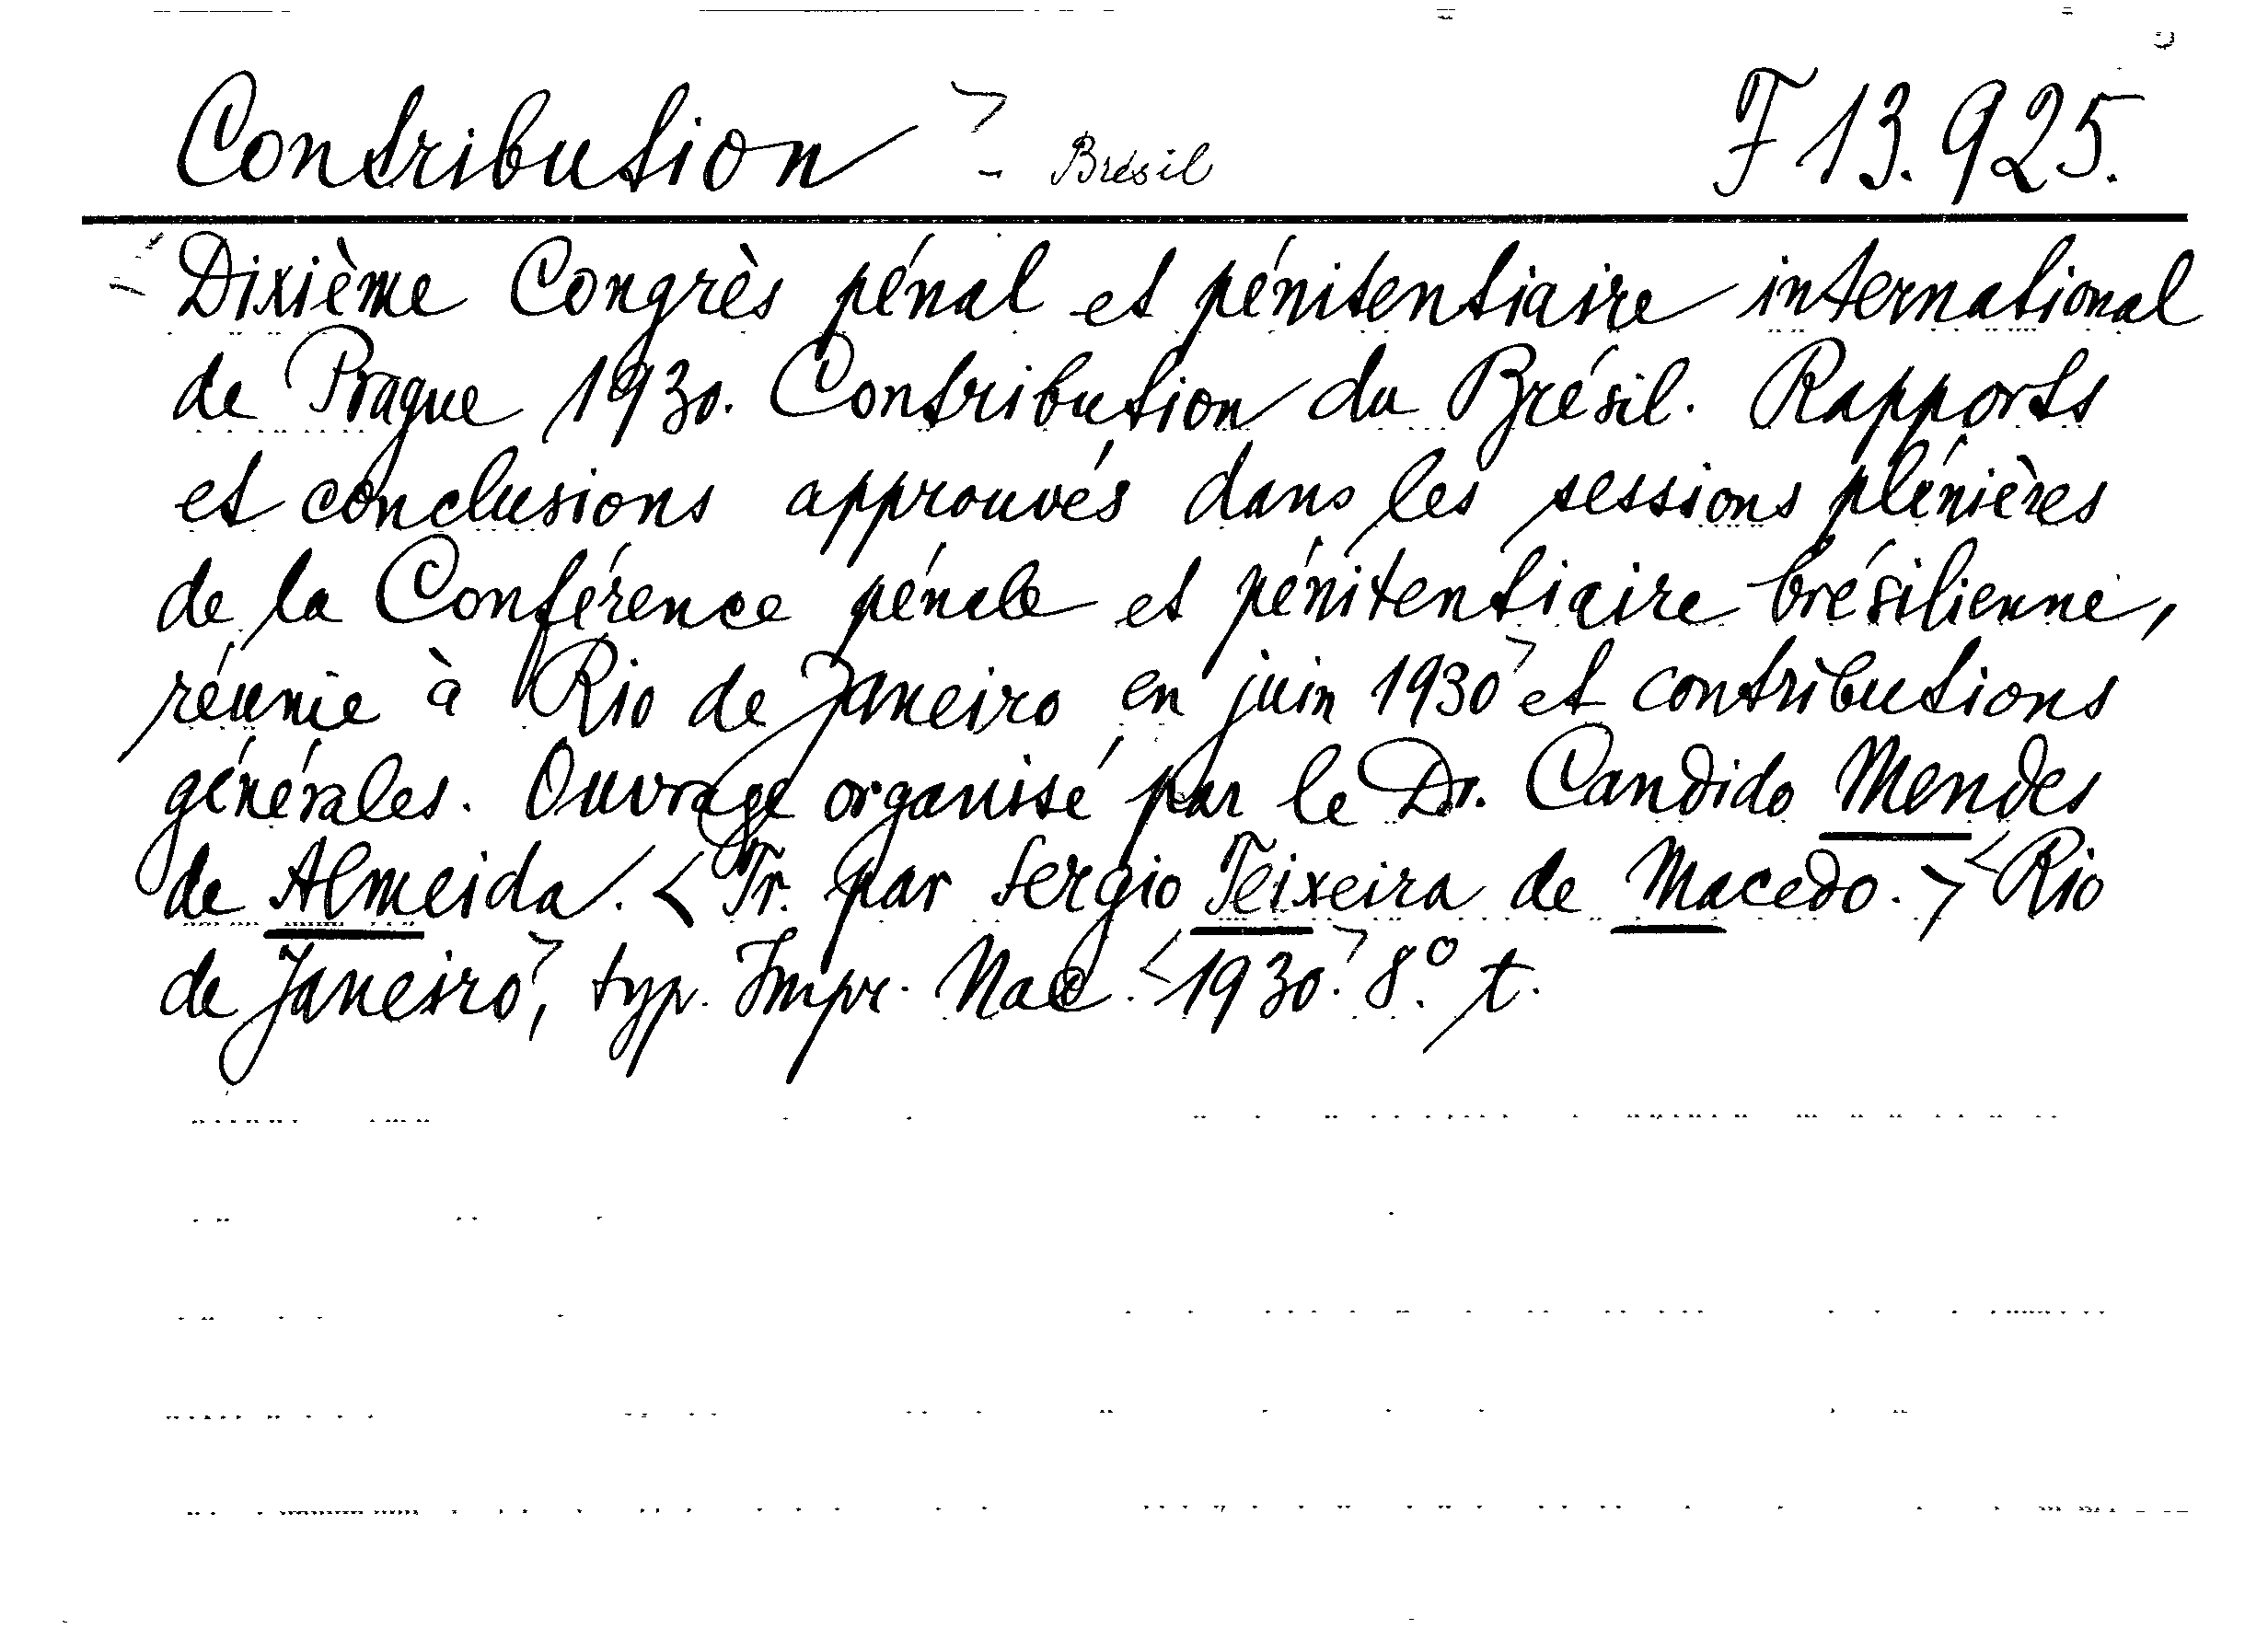 Contribution > - Brésil F 13.925.
Dixième Congrès pénal et pénitentiaire international
de Prague 1930. Contribution du Brésil. Rapports
et conclusions approuvés dans les sessions plénières
de la Conférence pénale et pénitentiaire brésilienne,
réunie à Rio de Janeiro en juin 1930> et contributions
générales. Ouvrage organisé par le Dr. Candido Mendes
de Almeida. < Tr. par Sergio Teixeira de Macedo. > <Rio
de Janeiro>, typ. Impr. Nac. <1930.> 8.º t.